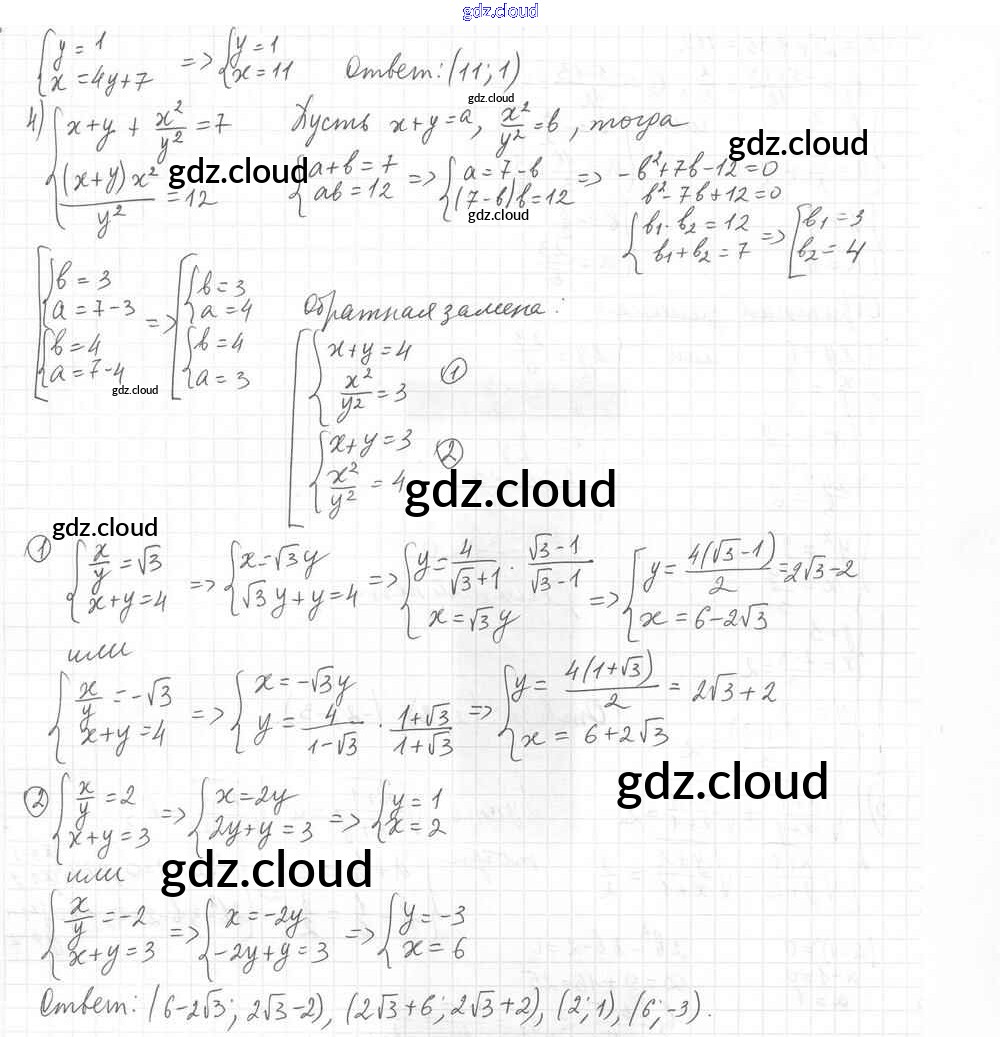 gdz.cloud
{ y = 1
x = 4y+7 => { y = 1
x = 11 Ответ: (11; 1)
gdz.cloud
4) { x+y + x²/y² = 7
(x+y)x²/y² = 12 Пусть x+y = a, x²/y² = b, тогда
gdz.cloud
gdz.cloud
{ a+b = 7
ab = 12 => { a = 7-b
(7-b)b = 12 => -b²+7b-12=0
b²-7b+12=0
gdz.cloud
{ b₁·b₂ = 12
b₁+b₂ = 7 => [ b₁ = 3
b₂ = 4
[ { b = 3
a = 7-3
{ b = 4
a = 7-4 => [ { b = 3
a = 4
{ b = 4
a = 3
gdz.cloud
Обратная замена:
[ { x+y = 4
x²/y² = 3 ①
{ x+y = 3
x²/y² = 4 ②
gdz.cloud
gdz.cloud
① { x/y = √3
x+y = 4 => { x = √3y
√3y+y = 4 => { y = 4/(√3+1) · (√3-1)/(√3-1)
x = √3y => { y = 4(√3-1)/2 = 2√3-2
x = 6-2√3
или
{ x/y = -√3
x+y = 4 => { x = -√3y
y = 4/(1-√3) · (1+√3)/(1+√3) => { y = 4(1+√3)/2 = 2√3+2
x = 6+2√3
gdz.cloud
② { x/y = 2
x+y = 3 => { x = 2y
2y+y = 3 => { y = 1
x = 2
gdz.cloud
или
{ x/y = -2
x+y = 3 => { x = -2y
-2y+y = 3 => { y = -3
x = 6
Ответ: (6-2√3; 2√3-2), (2√3+6; 2√3+2), (2; 1), (6; -3).